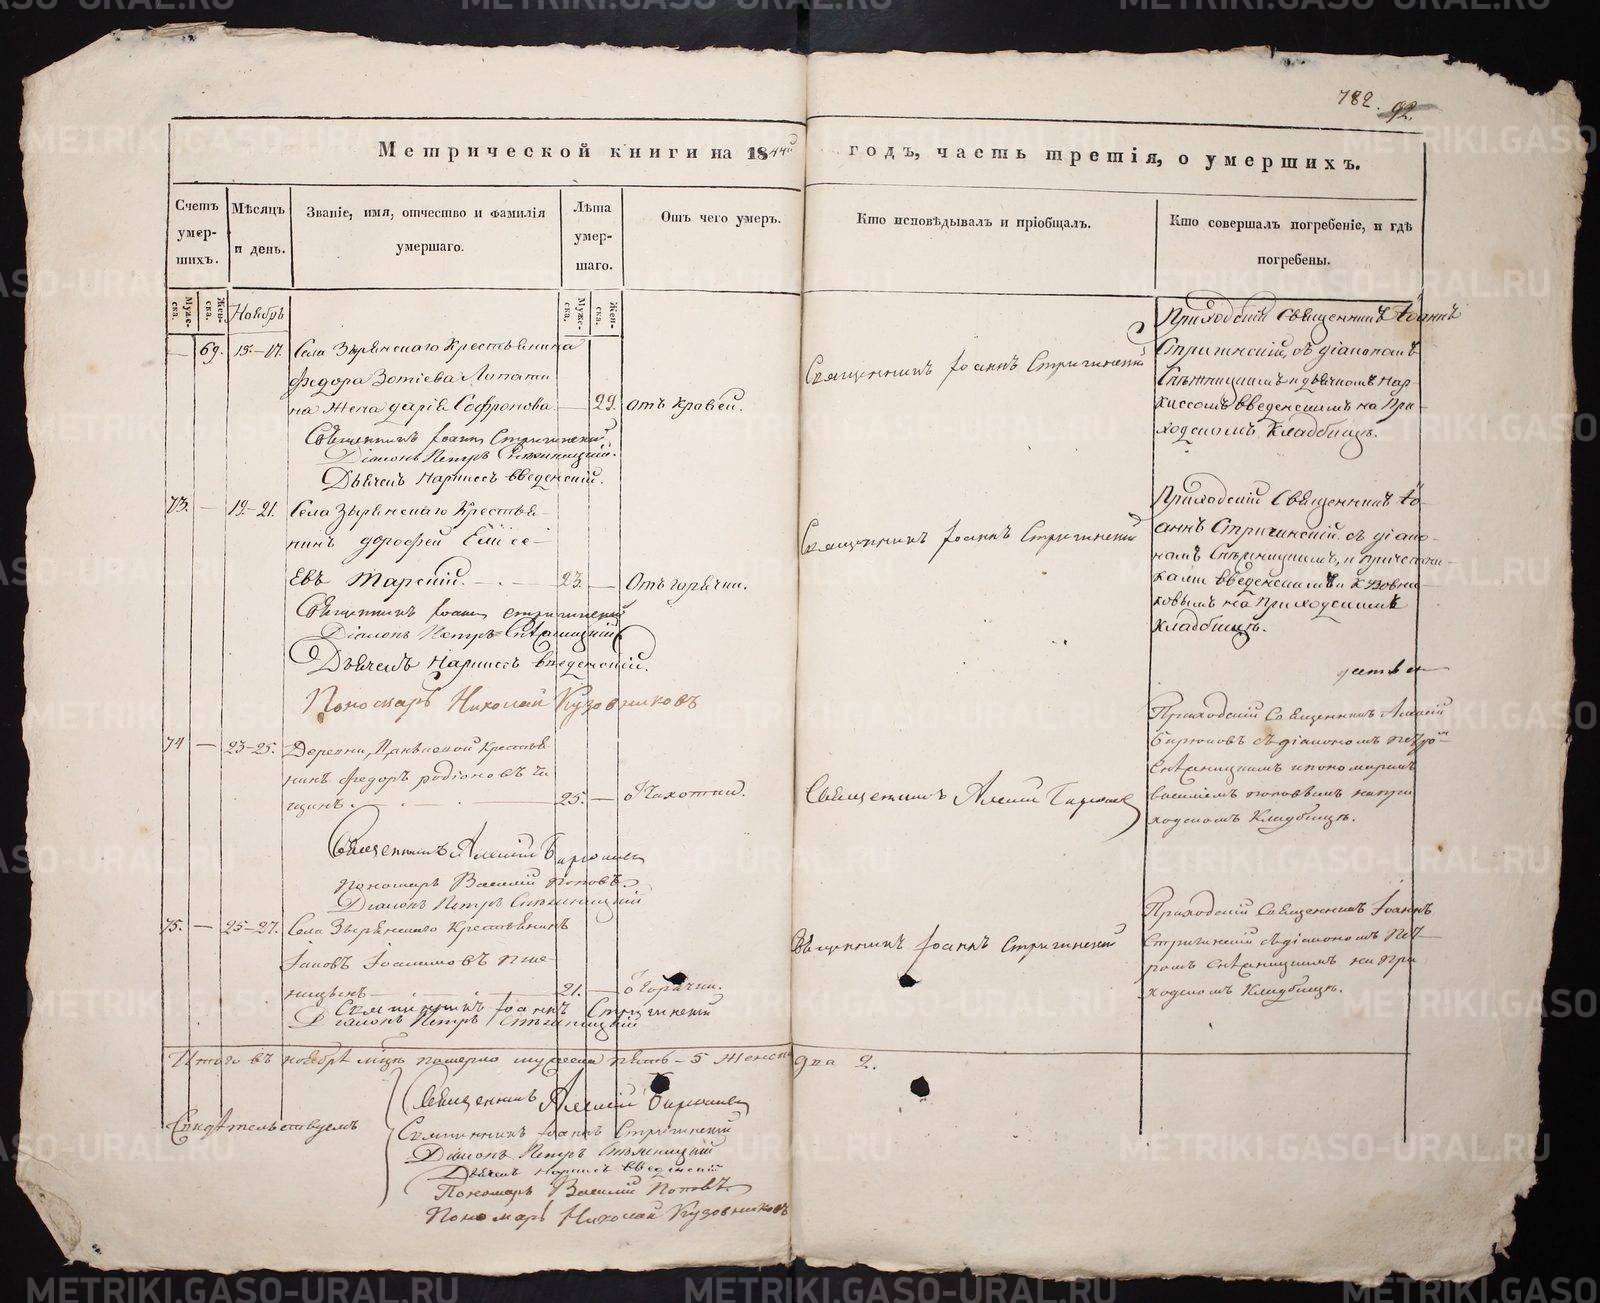 782. 92.
Метрической книги на 1844й годъ, часть третія, о умершихъ.
Счетъ умер-шихъ.
Мѣсяцъ и день.
Званіе, имя, отчество и фамилія умершаго.
Лѣта умер-шаго.
Отъ чего умеръ.
Кто исповѣдывалъ и пріобщалъ.
Кто совершалъ погребеніе, и гдѣ погребены.
Муже-ска.
Жен-ска.
Муже-ска.
Жен-ска.
Ноябрь
— 69. 15.-17. Села Зырянскаго Крестьянина
Федора Зотіева Лопати
на Жена Дарія Софронова — 29. отъ кровей.
Священникъ Іоаннъ Стригинскій
Діаконъ Петръ
Дьячекъ Наркиссъ Введенскій.
Священникъ Іоаннъ Стригинскій
Приходскій Священникъ Іоаннъ
Стригинскій, съ діакономъ
и дьячкомъ Нар-
киссомъ Введенскимъ на При-
ходскомъ Кладбищѣ.
73. — 19.-21. Села Зырянскаго Крестья-
нинъ Дорофей Елисе-
евъ 23. — Отъ горячки.
Священникъ Іоаннъ Стригинскій
Діаконъ Петръ
Дьячекъ Наркиссъ Введенскій.
Пономарь Николай Кузовниковъ
Священникъ Іоаннъ Стригинскій
Приходскій Священникъ Іо-
аннъ Стригинскій съ діако-
номъ и причетни-
ками Введенскимъ и Кузовни
ковымъ на Приходскомъ
Кладбищѣ.
74 — 23-25. Деревни Крестья
нинъ Федоръ Родіоновъ Ча
щинъ. 25. — отъ чахотки.
Священникъ Алексій Бирюковъ
Пономарь Василій Поповъ.
Діаконъ Петръ
Священникъ Алексій Бирюковъ
Приходскій Священникъ Алексій
Бирюковъ съ діакономъ Петромъ
и пономаремъ
Василіемъ Поповымъ на при
ходскомъ Кладбищѣ.
75. — 25-27. Села Зырянскаго Крестьянинъ
Іаковъ Іоакимовъ Пше-
ницынъ — 21. — отъ Горячки.
Священникъ Іоаннъ Стригинскій
Діаконъ Петръ
Священникъ Іоаннъ Стригинскій
Приходскій Священникъ Іоаннъ
Стригинскій съ діакономъ Пет-
ромъ на при
ходскомъ Кладбищѣ.
Итого въ ноябрѣ мцѣ померло мужеска пять - 5 женска два 2.
Свидѣтельствуемъ
Священникъ Алексій Бирюковъ
Священникъ Іоаннъ Стригинскій
Діаконъ Петръ
Дьячекъ Наркиссъ Введенскій
Пономарь Василій Поповъ.
Пономарь Николай Кузовниковъ
METRIKI.GASO-URAL.RU